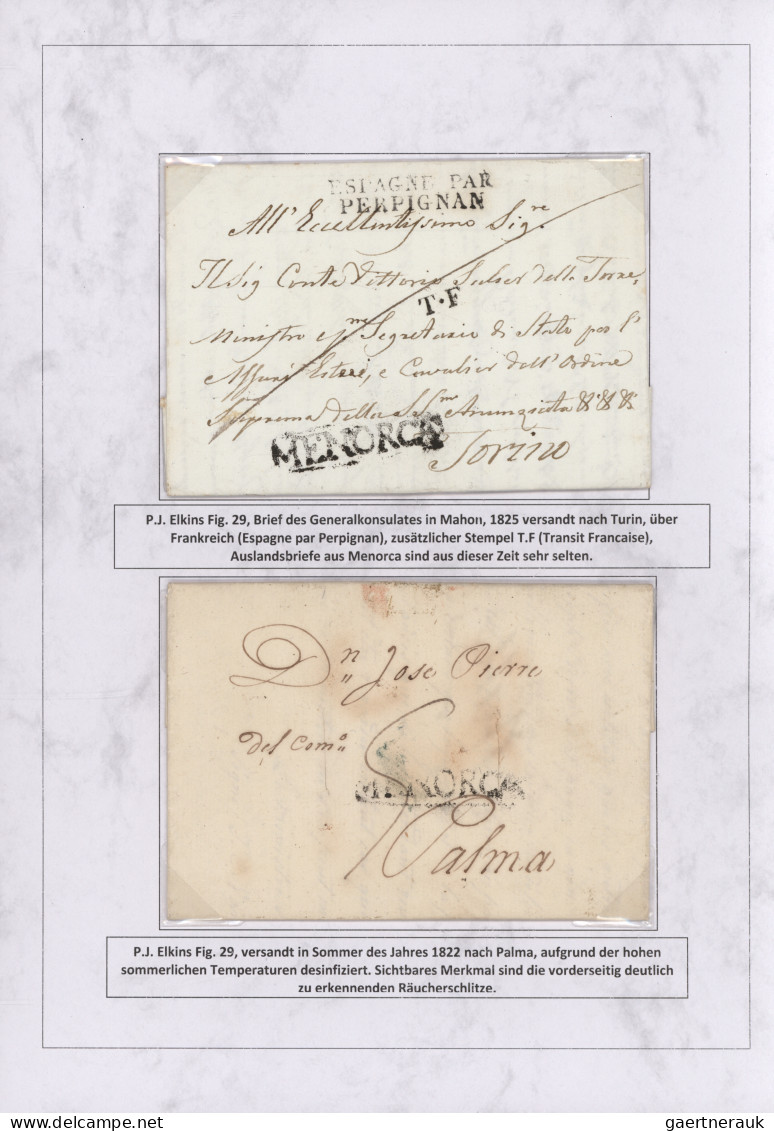 ESPAGNE PAR
PERPIGNAN
All' Eccellentissimo Sigre.
Il Sig Conte Vittorio Salser della Torre,
T.F
Ministro e pmo Segretario di Stato per l'
Affari Esteri, e Cavalier dell'Ordine
Supremo della SSma Annunziata &c &c &c
MENORCA
Torino
P.J. Elkins Fig. 29, Brief des Generalkonsulates in Mahon, 1825 versandt nach Turin, über
Frankreich (Espagne par Perpignan), zusätzlicher Stempel T.F (Transit Francaise),
Auslandsbriefe aus Menorca sind aus dieser Zeit sehr selten.
Dn Jose Pierre
del como
MENORCA
Palma
P.J. Elkins Fig. 29, versandt in Sommer des Jahres 1822 nach Palma, aufgrund der hohen
sommerlichen Temperaturen desinfiziert. Sichtbares Merkmal sind die vorderseitig deutlich
zu erkennenden Räucherschlitze.
gaertnerauk